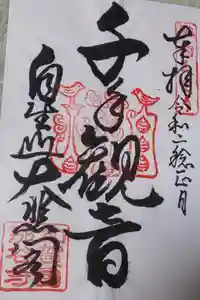 奉拝 令和二稔正月
千手観音
自生山 大悲閣